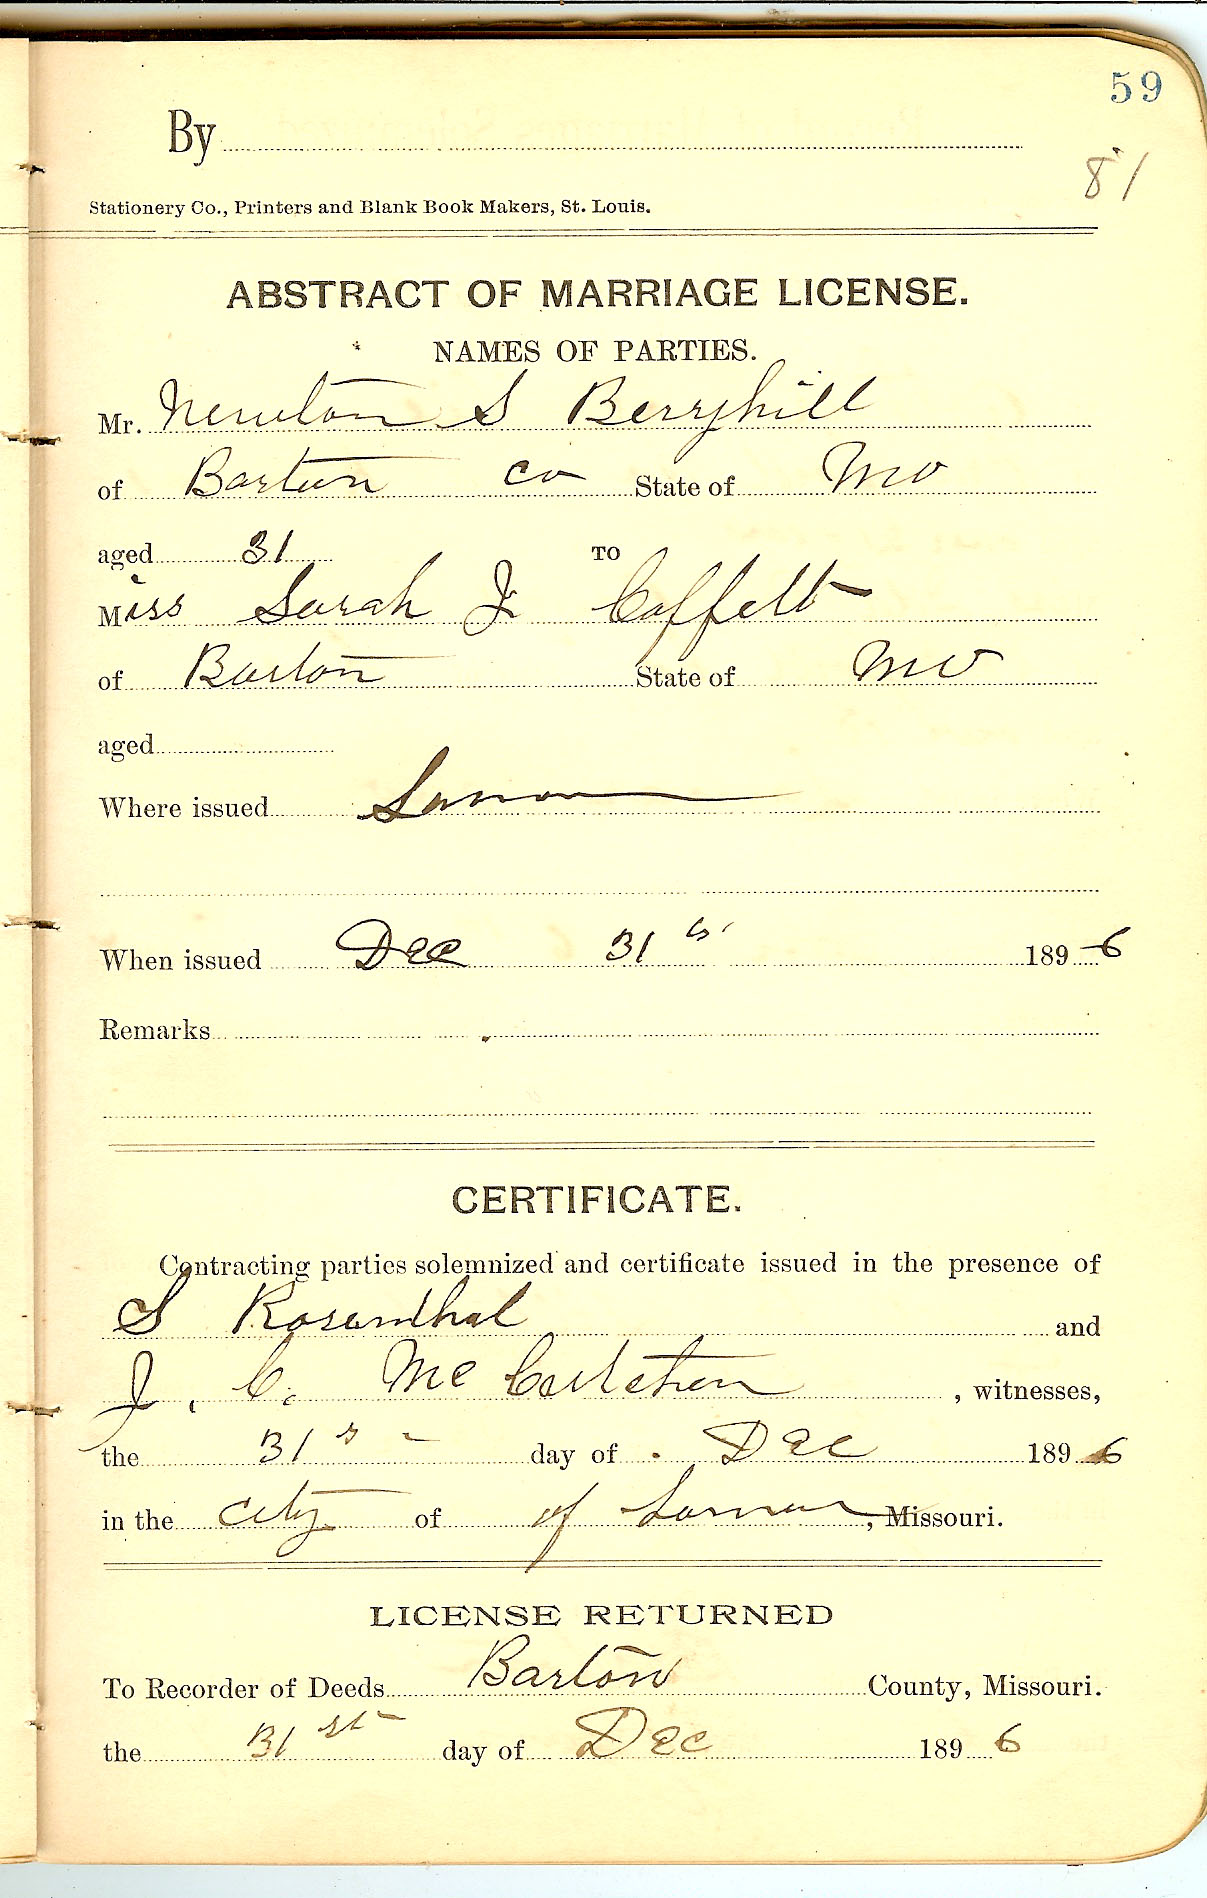 59
By
81
Stationery Co., Printers and Blank Book Makers, St. Louis.
ABSTRACT OF MARRIAGE LICENSE.
NAMES OF PARTIES.
Mr. Newton S Berryhill
of Barton Co State of Mo
aged 31 TO
Miss Sarah J Coffelt
of Barton State of Mo
aged
Where issued Lamar
When issued Dec 31st 1896
Remarks
CERTIFICATE.
Contracting parties solemnized and certificate issued in the presence of
S Rosenthal and
J. C. McCutchen, witnesses,
the 31st day of Dec 1896
in the City of of Lamar, Missouri.
LICENSE RETURNED
To Recorder of Deeds Barton County, Missouri.
the 31st day of Dec 1896